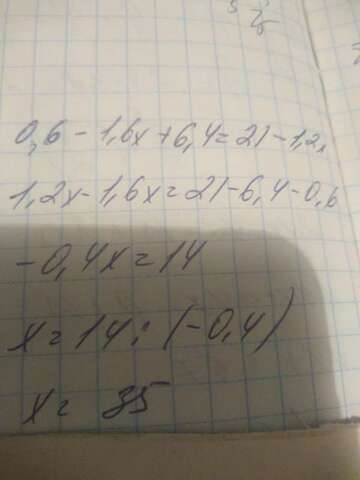 0,6 - 1,6x + 6,4 = 21 - 1,2x
1,2x - 1,6x = 21 - 6,4 - 0,6
-0,4x = 14
x = 14 : (-0,4)
x = 35